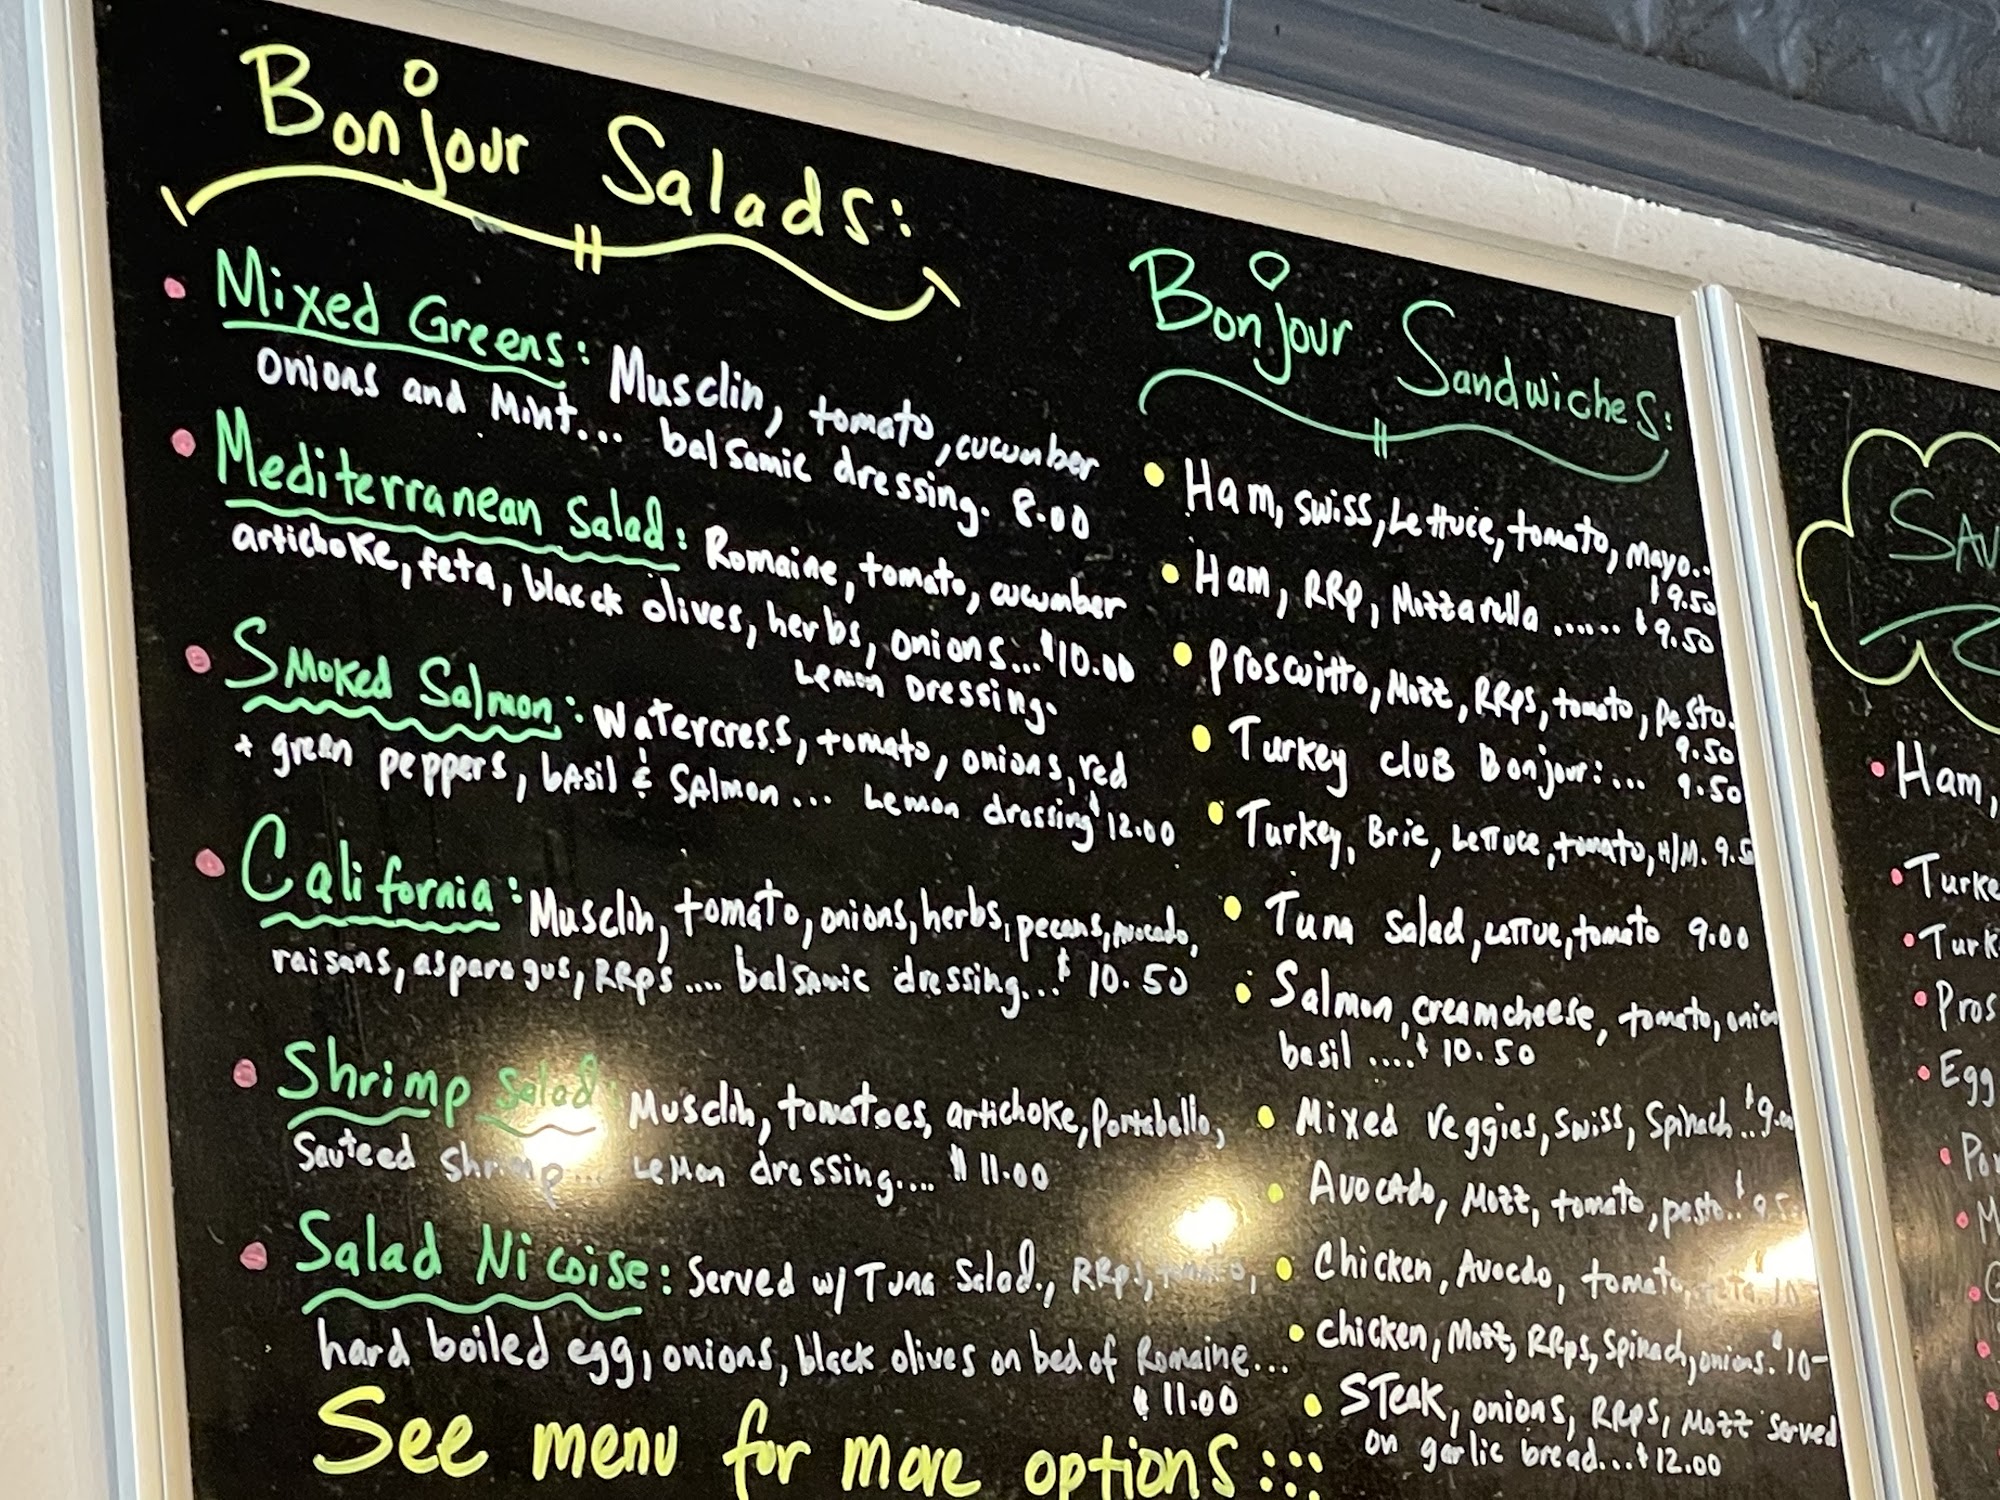 Bonjour Salads:
Mixed Greens: Musclin, tomato, cucumber
onions and Mint... balsamic dressing. 8.00
Mediterranean Salad: Romaine, tomato, cucumber
artichoke, feta, blacck olives, herbs, onions...$10.00
Lemon Dressing.
Smoked Salmon: Watercress, tomato, onions, red
+ green peppers, basil & Salmon... Lemon dressing $12.00
California: Musclin, tomato, onions, herbs, pecans, avocado,
raisans, asparagus, RRPs.... balsamic dressing...$10.50
Shrimp Salad: Musclin, tomatoes, artichoke, Portabello,
Sauteed shrimp... Lemon dressing.... $11.00
Salad Nicoise: Served w/ Tuna Salad., RRPs, tomato,
hard boiled egg, onions, black olives on bed of Romaine...
$11.00
See menu for more options:::
Bonjour Sandwiches:
Ham, swiss, Lettuce, tomato, mayo..
$9.50
Ham, RRP, Mozzarella ...... $9.50
Proscuitto, Mozz, RRPs, tomato, pesto.
9.50
Turkey club Bonjour:... 9.50
Turkey, Brie, Lettuce, tomato, H/M. 9.5
Tuna Salad, Lettue, tomato 9.00
Salmon, creamcheese, tomato, onion
basil ....$10.50
Mixed Veggies, Swiss, Spinach..$9.00
Avocado, Mozz, tomato, pesto..$9.5
Chicken, Avocdo, tomato,
Chicken, Mozz, RRPs, Spinach, onions.$10-
Steak, onions, RRPs, Mozz served
on garlic bread...$12.00
Sav
Ham,
Turke
Turk
Pros
Egg
Po
M